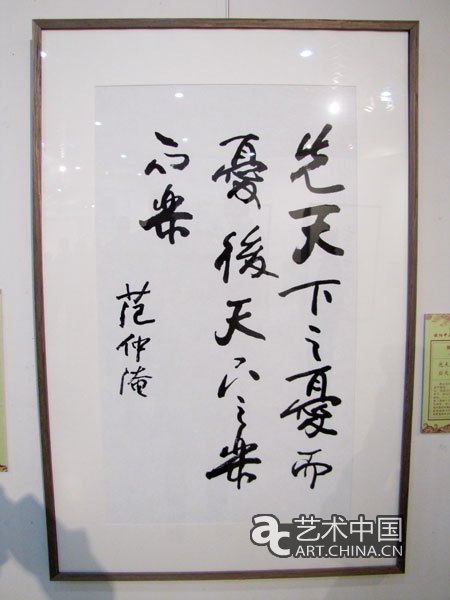 先天下之憂而
憂後天下之樂
而樂
范仲淹
艺术中国
ART.CHINA.CN